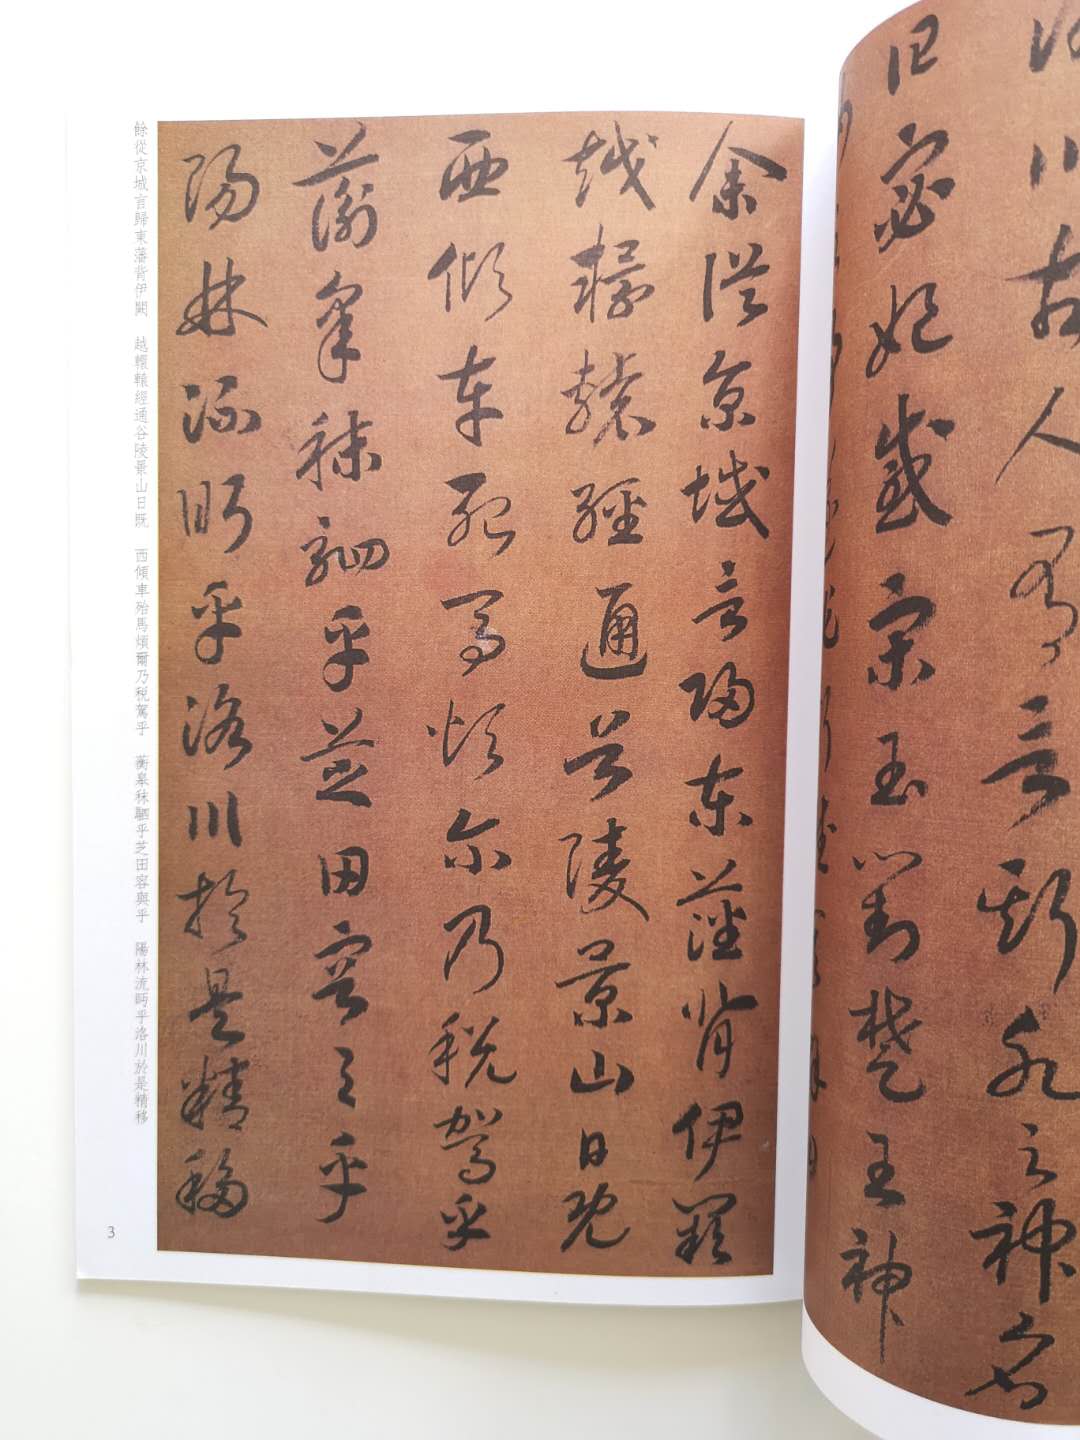 川古人有言斯水之神名
曰宓妃感宋玉對楚王神
余從京城言歸東藩背伊闕
越轘轅經通谷陵景山日既
西傾車殆馬煩尔乃税駕乎
蘅皋秣駟乎芝田容與乎
陽林流眄乎洛川於是精移
餘從京城言歸東藩背伊闕 越轘轅經通谷陵景山日既 西傾車殆馬煩爾乃税駕乎 蘅皋秣駟乎芝田容與乎 陽林流眄乎洛川於是精移
3